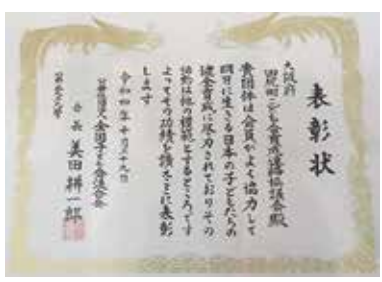 表彰状
大阪府
田尻町こども会育成連絡協議会殿
貴団体は会員がよく協力して
明日に生きる日本の子どもたちの
健全育成に尽力されておりその
活動は他の模範とするところです
よってその功績を讃えここに表彰
します
令和四年十月二十九日
公益社団法人全国子ども会連合会
会長 美田耕一郎